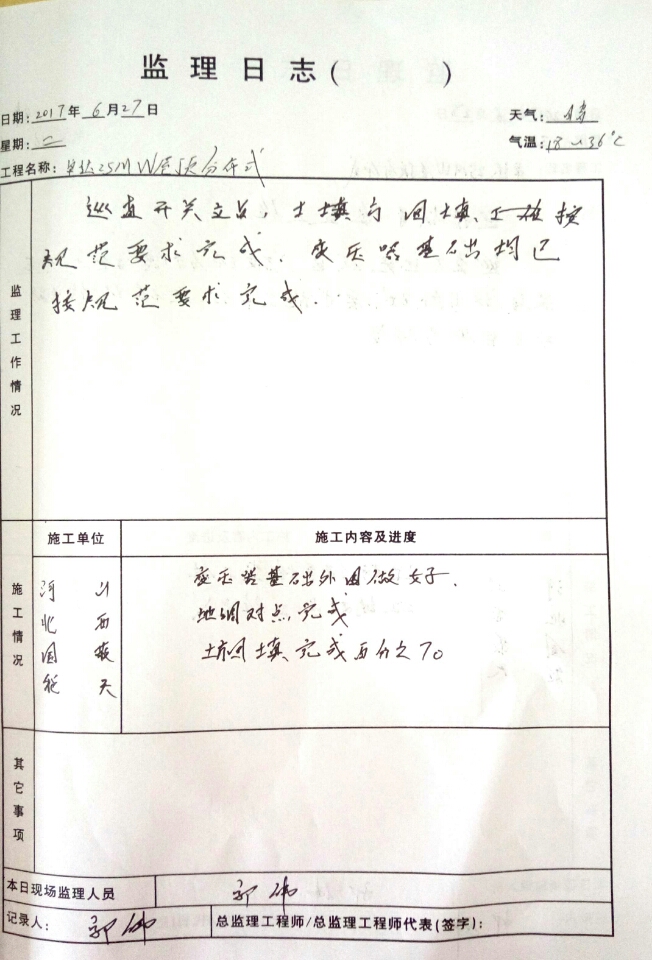 监理日志(    )
日期: 2017年 6月27日
天气: 晴
星期: 二
气温: 18~36℃
工程名称: 25MW屋顶分布式
监理工作情况
巡查开关 土填与回填正在按
规范要求完成. 变压器基础均已
按规范要求完成.
施工情况
施工单位
施工内容及进度
河北国能
山西 天
变压器基础外围做好.
完成
土方回填完成百分之70
其它事项
本日现场监理人员
郭伟
记录人: 郭伟
总监理工程师/总监理工程师代表(签字):